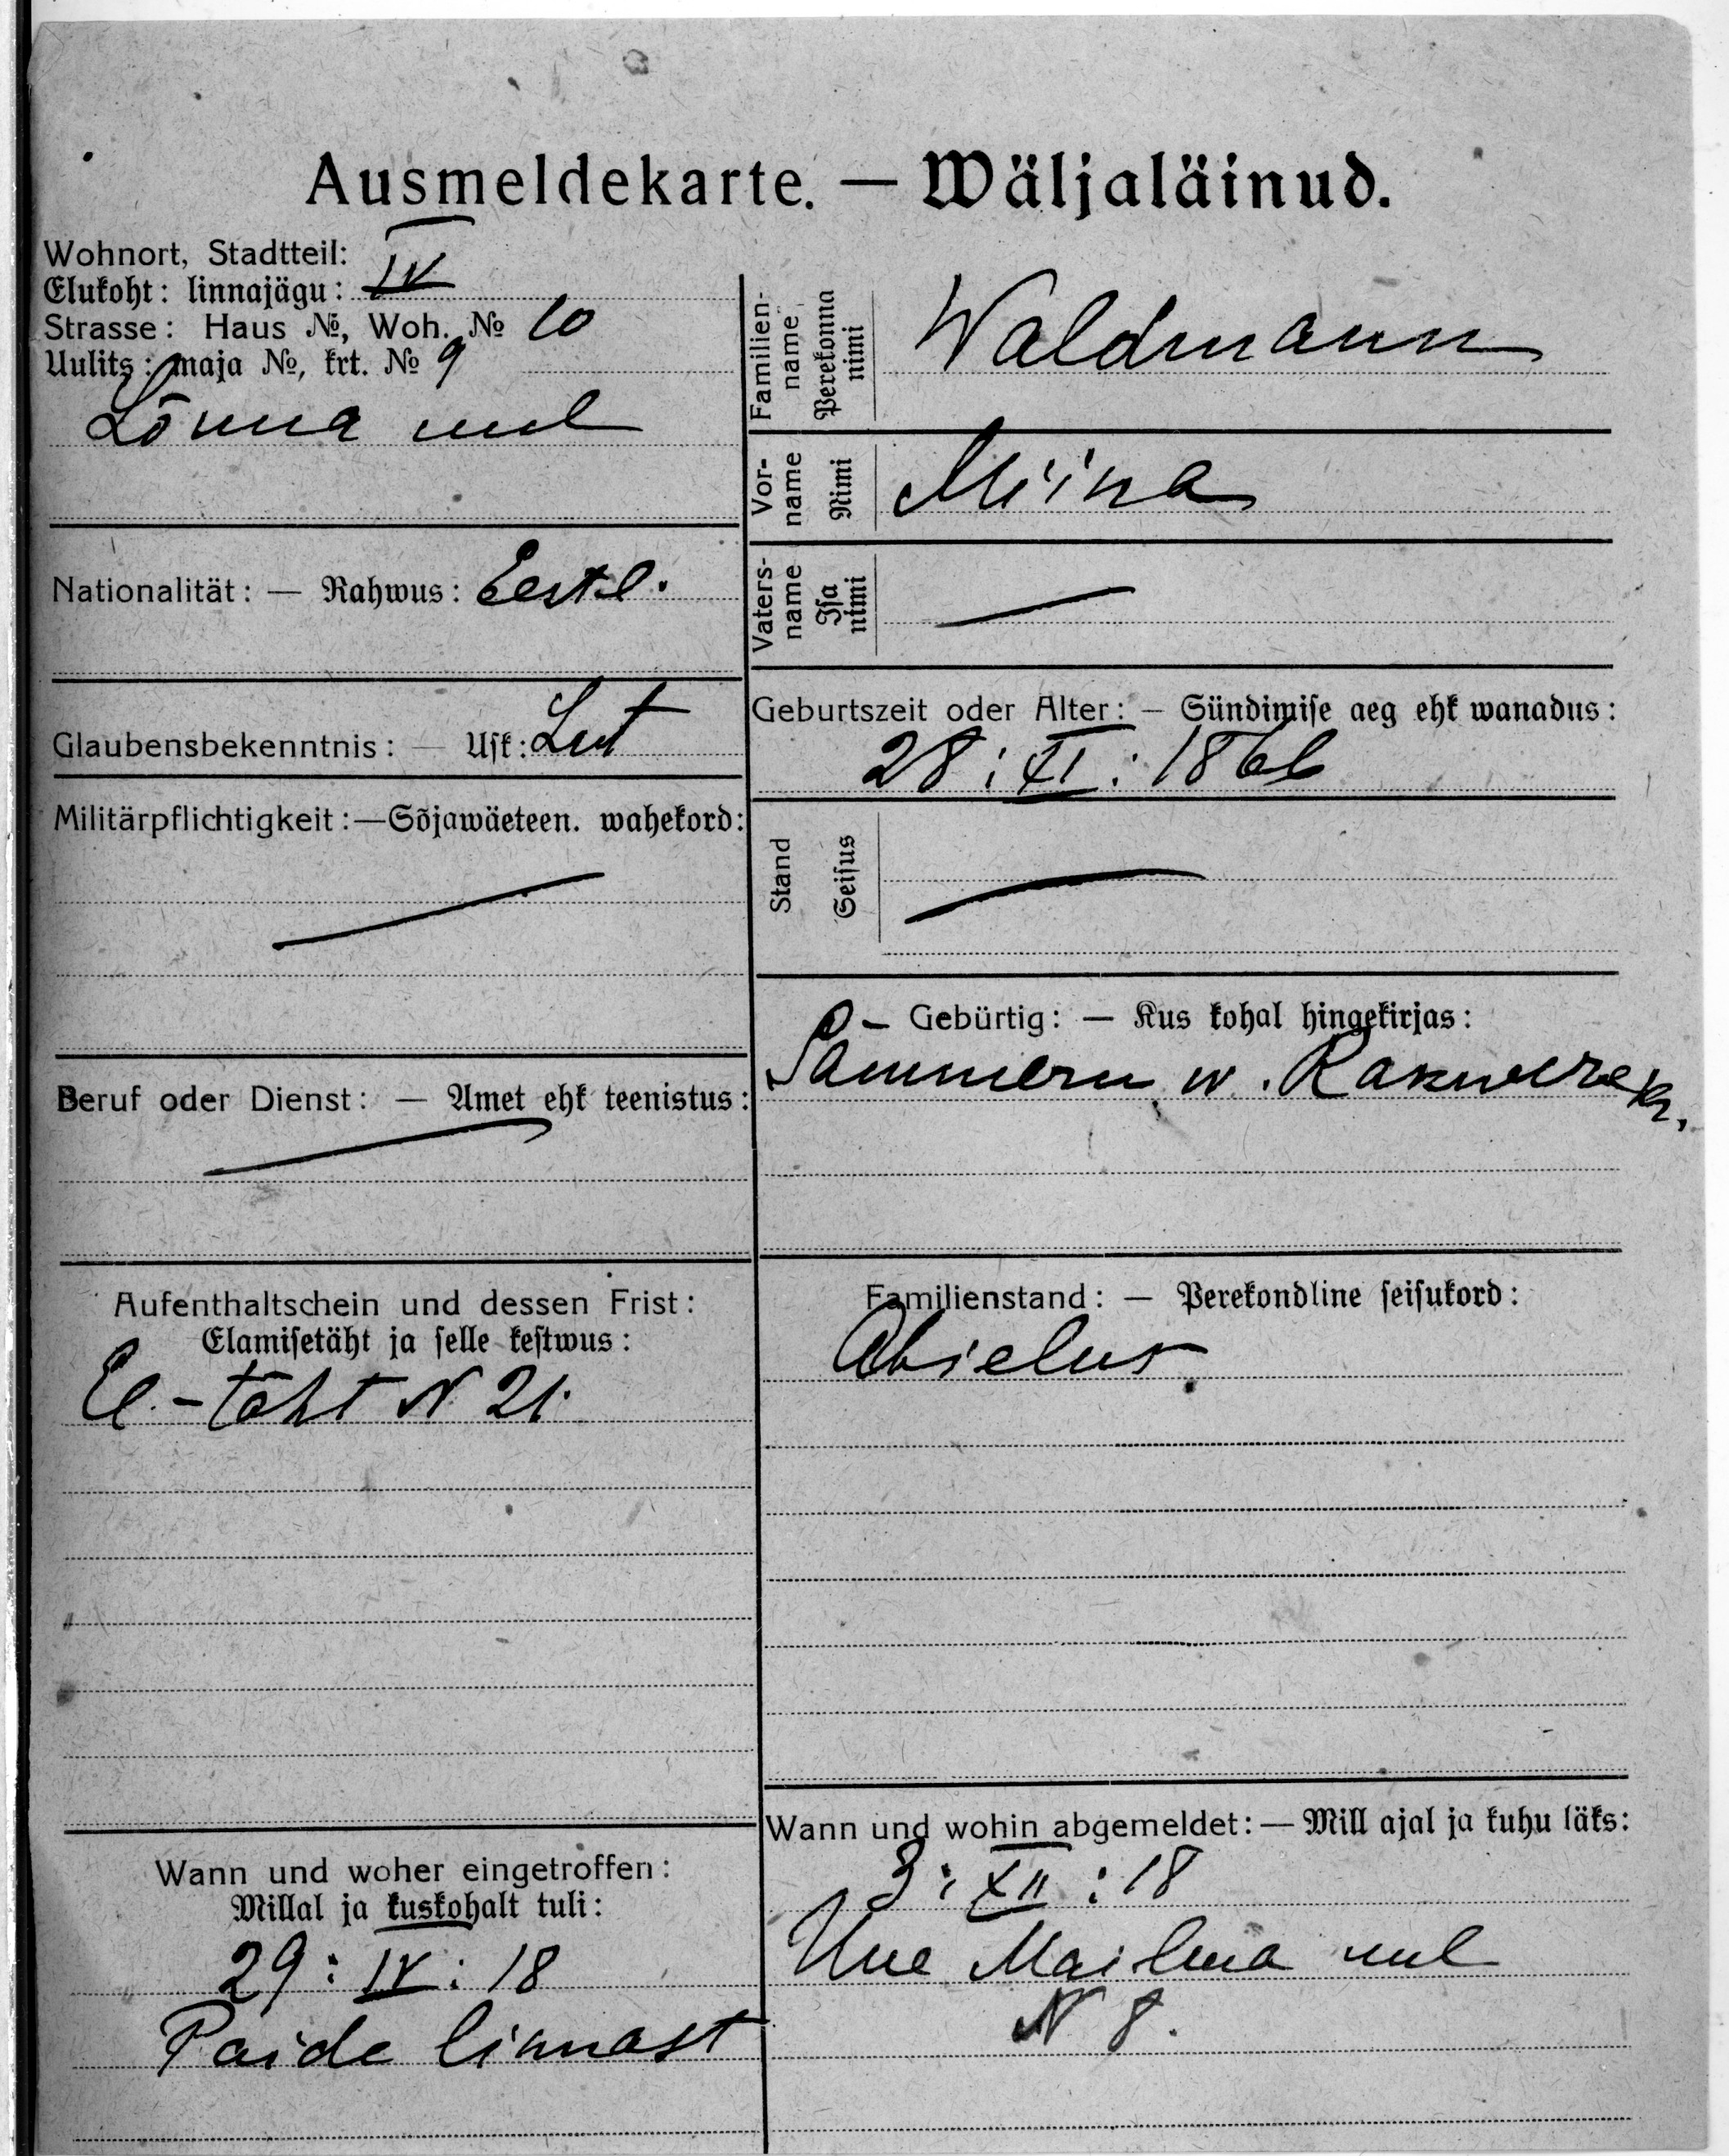 Ausmeldekarte. — Wäljaläinud.
Wohnort, Stadtteil:
Elukoht: linnajägu: IV
Strasse: Haus №, Woh. № 10
Uulits: maja №, krt. № 9
Lõuna uul
Nationalität: — Rahwus: Eestl.
Glaubensbekenntnis: — Usk: Lut
Militärpflichtigkeit: — Sõjawäeteen. wahekord:
—
Beruf oder Dienst: — Amet ehk teenistus:
—
Aufenthaltschein und dessen Frist:
Elamisetäht ja selle kestwus:
El.-täht N 21.
Wann und woher eingetroffen:
Millal ja kuskohalt tuli:
29: IV: 18
Paide linnast
Familien-
name
Perekonna
nimi
Waldmann
Vor-
name
Nimi
Miina
Vaters-
name
Isa
nimi
—
Geburtszeit oder Alter: — Sündimise aeg ehk wanadus:
28: XI: 1866
Stand
Seisus
—
Gebürtig: — Kus kohal hingekirjas:
w. Rakwere kr.
Familienstand: — Perekondline seisukord:
Abielus
Wann und wohin abgemeldet: — Mill ajal ja kuhu läks:
3: XII: 18
Uue Mailma uul
N 8.